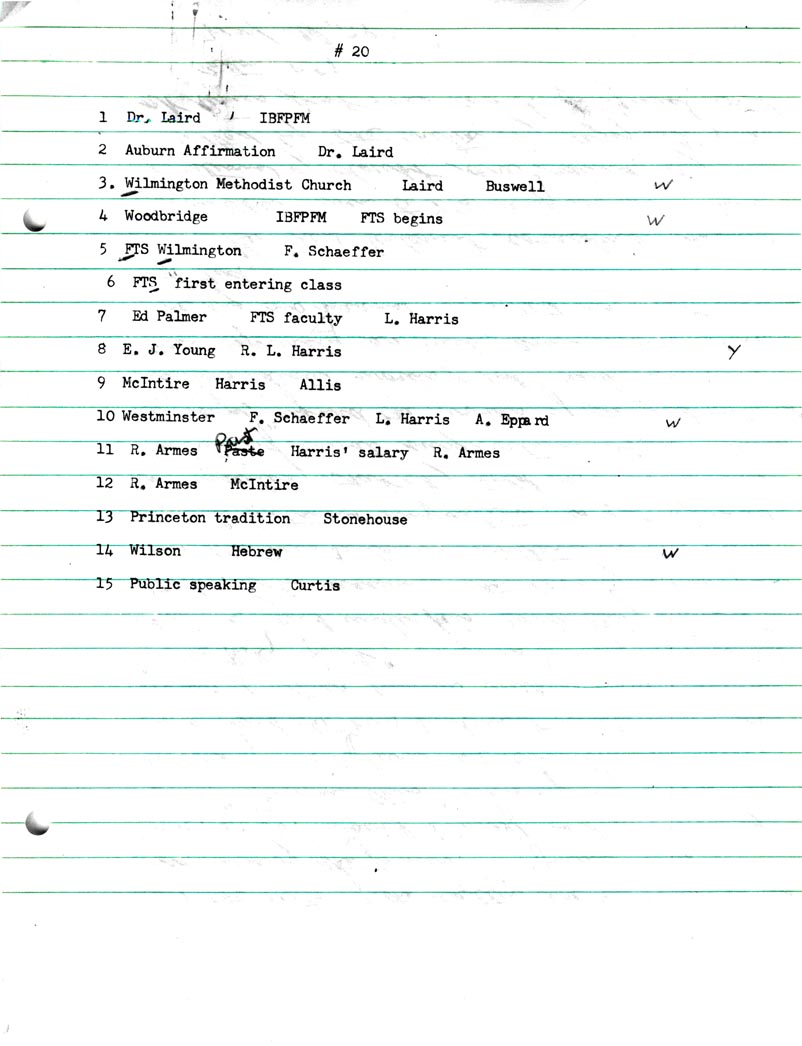 # 20
1 Dr. Laird IBFPFM
2 Auburn Affirmation Dr. Laird
3. Wilmington Methodist Church Laird Buswell W
4 Woodbridge IBFPFM FTS begins W
5 FTS Wilmington F. Schaeffer
6 FTS "first entering class
7 Ed Palmer FTS faculty L. Harris
8 E. J. Young R. L. Harris Y
9 McIntire Harris Allis
10 Westminster F. Schaeffer L. Harris A. Eppard W
11 R. Armes Paste Harris' salary R. Armes
12 R. Armes McIntire
13 Princeton tradition Stonehouse
14 Wilson Hebrew W
15 Public speaking Curtis